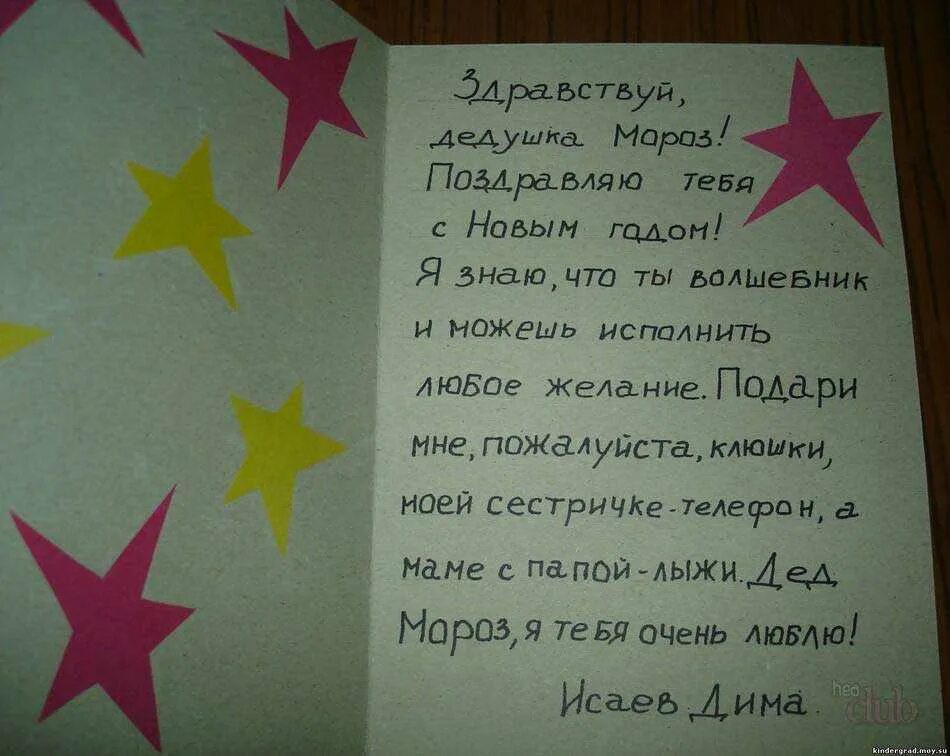 Здравствуй,
дедушка Мороз!
Поздравляю тебя
с Новым годом!
Я знаю, что ты волшебник
и можешь исполнить
любое желание. Подари
мне, пожалуйста, клюшки,
моей сестричке-телефон, а
маме с папой-лыжи. Дед
Мороз, я тебя очень люблю!
Исаев Дима
neo
club
kindergrad.moy.su